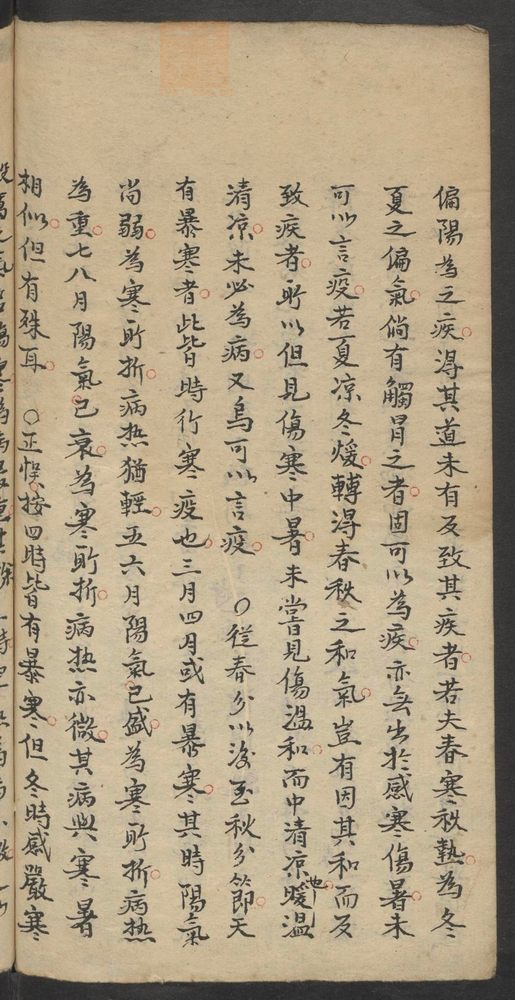 偏陽為之疾淂其道未有反致其疾者若夫春寒秋熱為冬
夏之偏氣倘有觸冐之者固可以為疾亦無出扵感寒傷暑未
可以言疫若夏凉冬煖轉淂春秋之和氣豈有因其和而反
致疾者所以但見傷寒中暑未嘗見傷溫和而中清凉也暖溫
清凉未必為病又烏可以言疫 ○從春分以後至秋分節天
有暴寒者此皆時行寒疫也三月四月或有暴寒其時陽氣
尚弱為寒所折病热猶輕五六月陽氣已盛為寒所折病热
為重七八月陽氣已衰為寒所折病热亦微其病與寒暑
相似但有殊耳 ○正悞按四時皆有暴寒但冬時感嚴寒